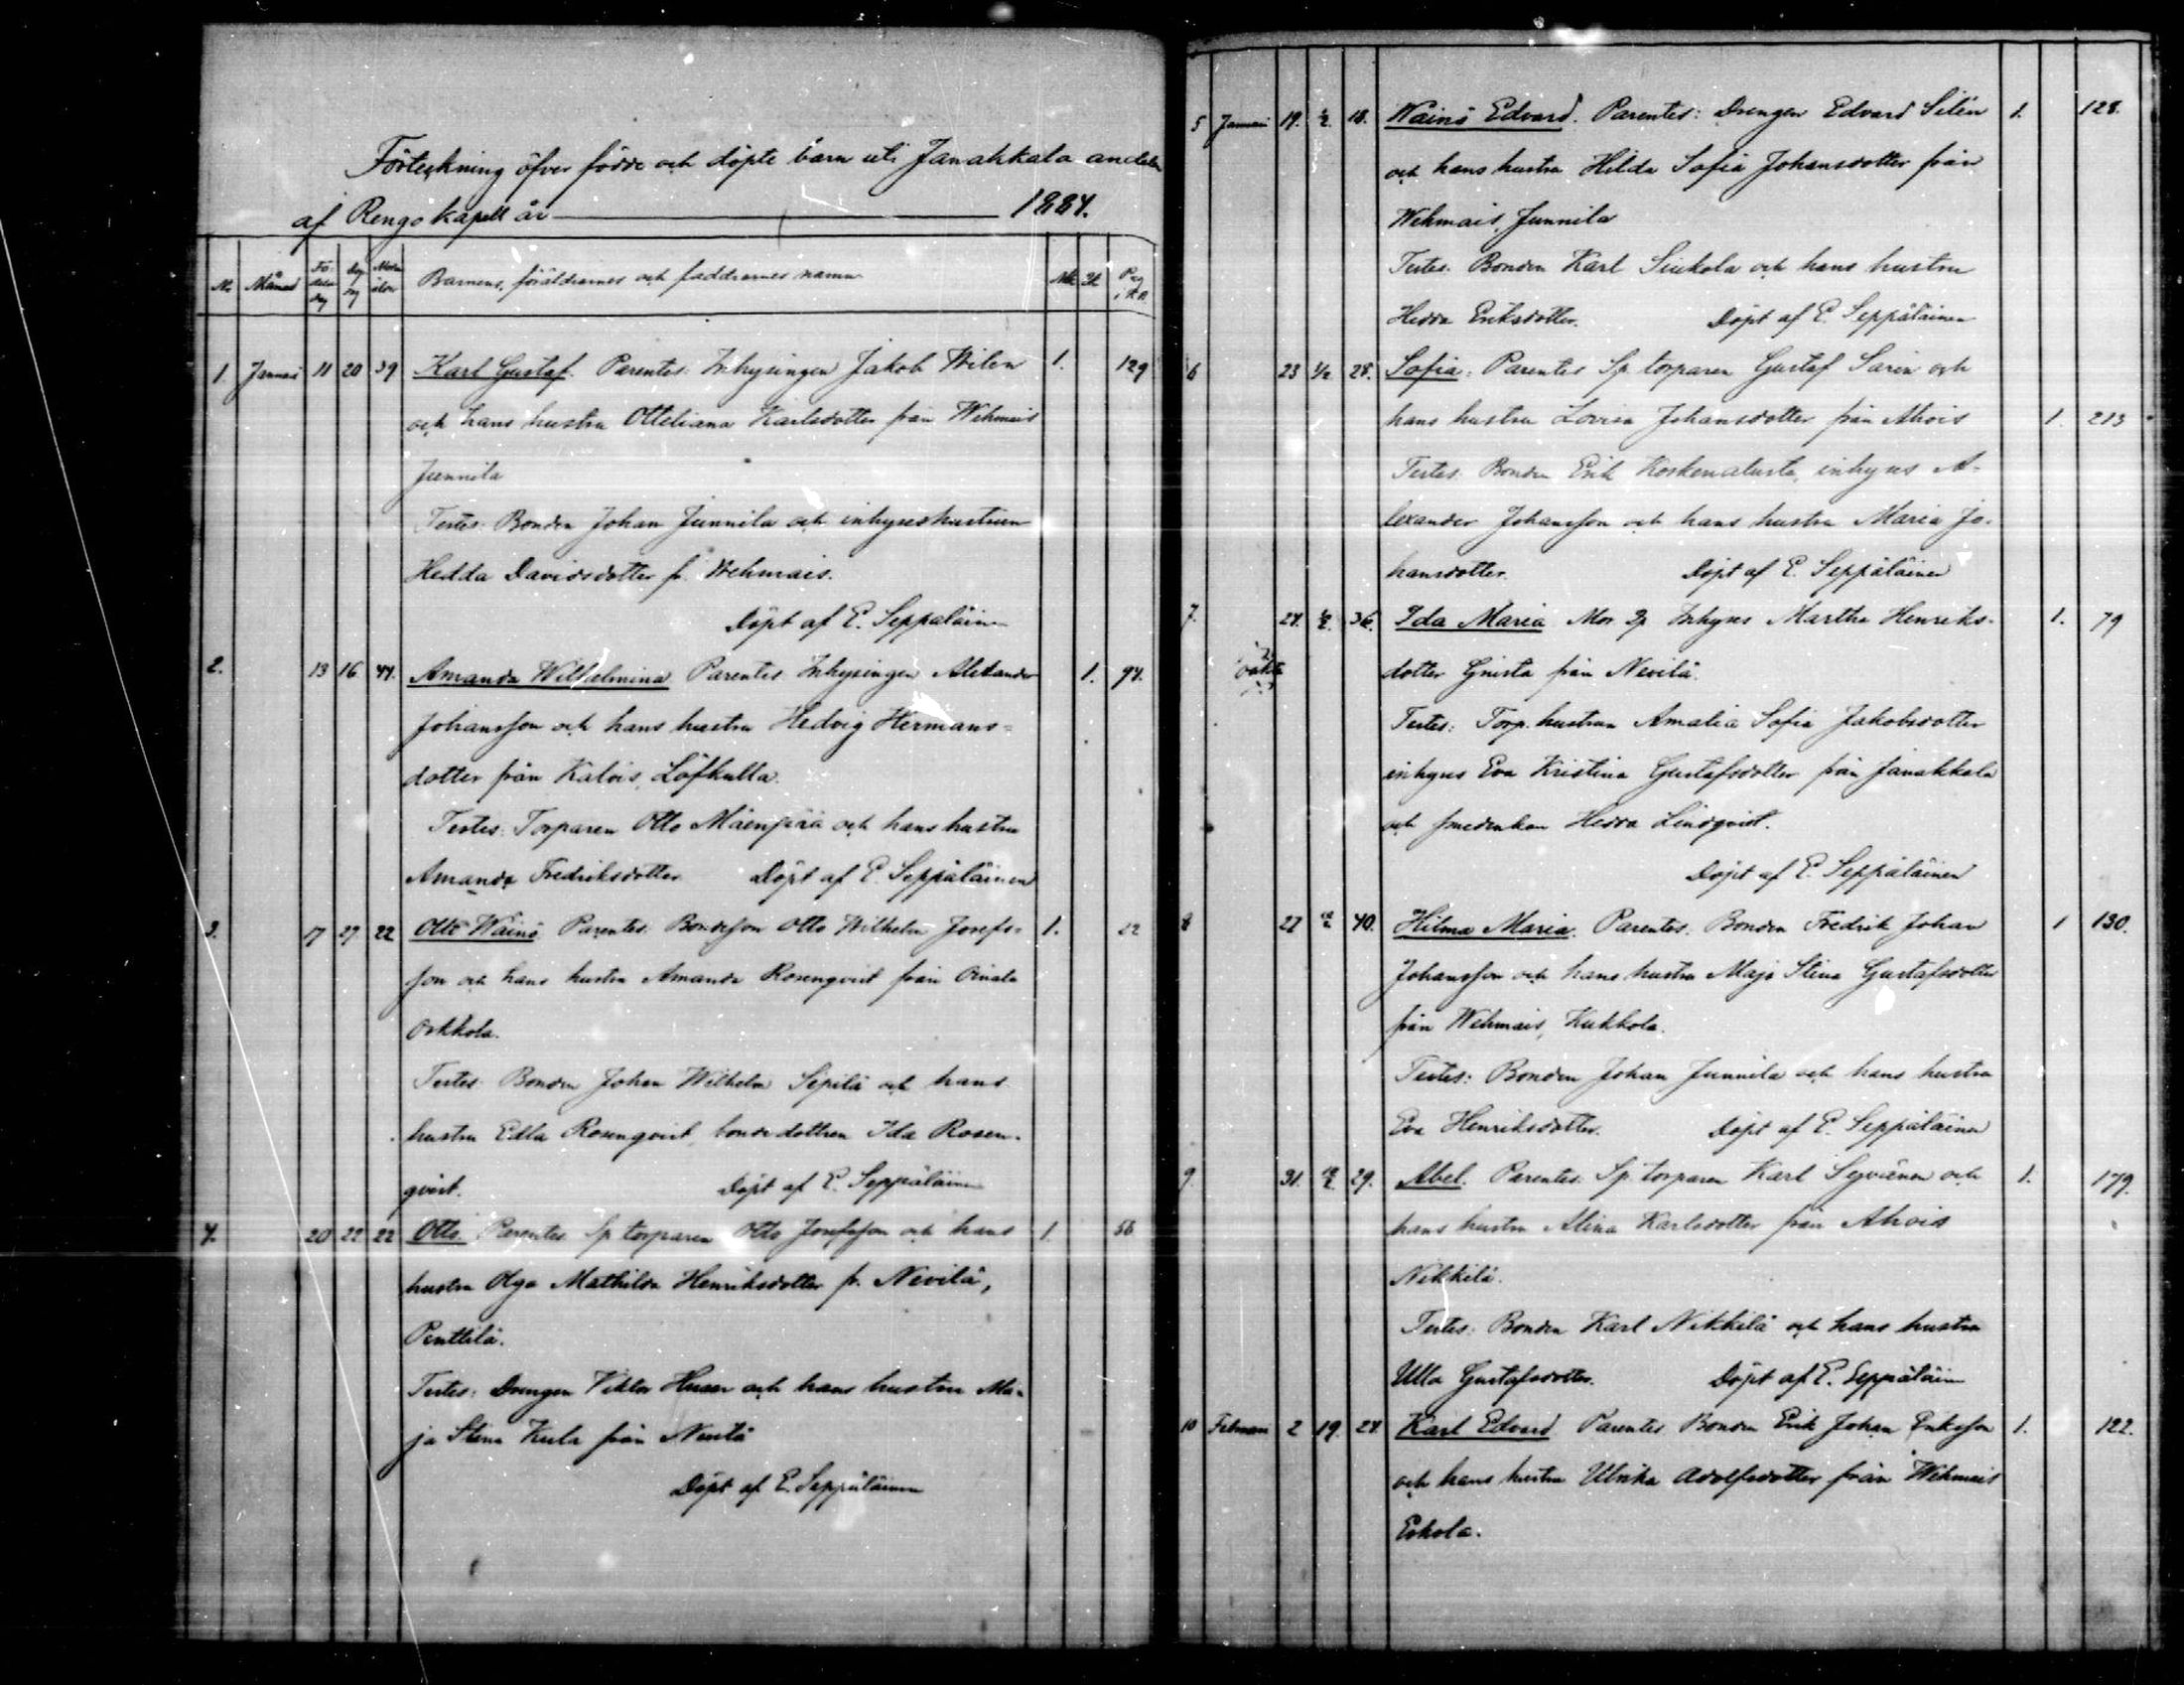 Förteckning öfver födde och döpte barn uti Janakkala andelen
af Rengo kapell år 1884.
No Månad Födelse dag Döp dag Moders ålder Barnens, föräldrarnes och faddrarnes namn Mk Qk Pag i K.B.
1. Januari 11 20 39 Karl Gustaf. Parentes: Inhysingen Jakob Wilen 1. 129
och hans hustru Otteliana Karlsdotter från Wehmais
Junnila
Testes: Bonden Johan Junnila och inhyseshustrun
Hedda Davidsdotter fr. Wehmais.
Döpt af E. Seppäläinen
2. 13 16 44. Amanda Wilhelmina Parentes Inhysingen Alexander 1. 94.
Johansson och hans hustru Hedvig Hermans-
dotter från Kalois, Löfkulla.
Testes: Torparen Otto Mäenpää och hans hustru
Amanda Fredriksdotter. Döpt af E. Seppäläinen
3. 17 27 22 Otto Wäinö Parentes: Bondesson Otto Wilhelm Josefs- 1. 22
son och hans hustru Amanda Rosenqvist från Oinala
Orkkola.
Testes: Bonden Johan Wilhelm Sipilä och hans
hustru Edla Rosenqvist, bondedottren Ida Rosen-
qvist. Döpt af E. Seppäläinen
4. 20 22 22 Otto. Parentes Sp. torparen Otto Josefsson och hans 1. 56
hustru Olga Mathilda Henriksdotter fr. Nevilä,
Penttilä.
Testes: Drengen Viktor och hans hustru Ma-
ja Stina Kula från Nevilä
Döpt af E. Seppäläinen
5 Januari 19. 1/2. 18. Wäinö Edvard. Parentes: Drengen Edvard Silén 1. 128.
och hans hustru Hilda Sofia Johansdotter från
Wehmais, Junnila
Testes: Bonden Karl Siukola och hans hustru
Hedda Eriksdotter. Döpt af E. Seppäläinen
6 23 1/2 28. Sofia. Parentes Sp. torparen Gustaf Sarin och
hans hustru Lovisa Johansdotter från Ahois 1. 213
Testes: Bonden Erik Koskenalusta, inhyses A-
lexander Johansson och hans hustru Maria Jo-
hansdotter. Döpt af E. Seppäläinen
7. 24. 1/2. 36. Ida Maria Mor Inhyses Martha Henriks- 1. 79
oäkta dotter Gnista från Nevilä.
Testes: Torp. hustrun Amalia Sofia Jakobsdotter
inhyses Eva Kristina Gustafsdotter från Janakkala
och smedenkan Hedda Lindqvist.
Döpt af E. Seppäläinen
8 27 40. Hilma Maria. Parentes. Bonden Fredrik Johan 1 130.
Johansson och hans hustru Maja Stina Gustafsdotter
från Wehmais, Kukkola.
Testes: Bonden Johan Junnila och hans hustru
Eva Henriksdotter. Döpt af E. Seppäläinen
9. 31. 29. Abel. Parentes. Sp. torparen Karl och 1. 179.
hans hustru Alina Karlsdotter från Ahois
Nikkilä.
Testes: Bonden Karl Nikkilä och hans hustru
Ulla Gustafsdotter. Döpt af E. Seppäläinen
10 Februari 2 19. 24. Karl Edvard Parentes Bonden Erik Johan Eriksson 1. 122.
och hans hustru Ulrika Adolfsdotter från Wehmais
Eskola.